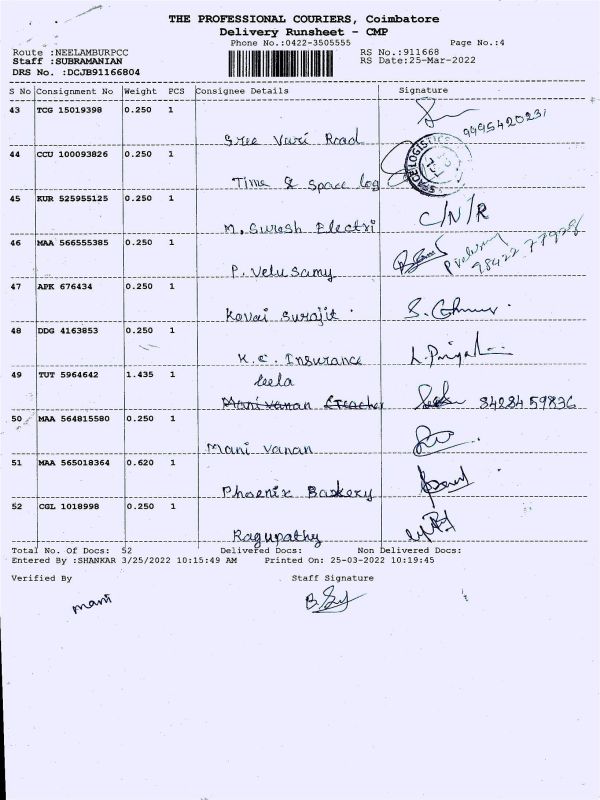 THE PROFESSIONAL COURIERS, Coimbatore
Delivery Runsheet - CMP
Phone No.:0422-3505555 Page No.:4
Route :NEELAMBURPCC RS No.:911668
Staff :SUBRAMANIAN RS Date:25-Mar-2022
DRS No. :DCJB91166804
S No Consignment No Weight PCS Consignee Details Signature
43 TCG 15019398 0.250 1
Sree Vari Road
44 CCU 100093826 0.250 1
Time & Space log
SPACE LOGISTICS
45 KUR 525955125 0.250 1
M. Suresh Electri C/N/R
46 MAA 566555385 0.250 1
P. Velusamy
47 APK 676434 0.250 1
Kovai Surajit
48 DDG 4163853 0.250 1
K.C. Insurance
49 TUT 5964642 1.435 1
leela
Mani vanan 84284 59836
50 MAA 564815580 0.250 1
Mani Vanan
51 MAA 565018364 0.620 1
Phoenix Baskery
52 CGL 1018998 0.250 1
Ragupathy
Total No. Of Docs: 52 Delivered Docs: Non Delivered Docs:
Entered By :SHANKAR 3/25/2022 10:15:49 AM Printed On: 25-03-2022 10:19:45
Verified By Staff Signature
mani